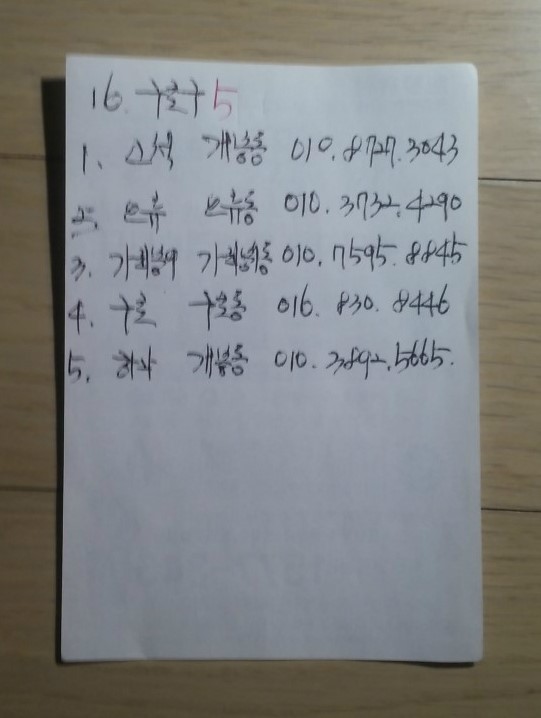 16. 구로구 5
1. 신석 개봉동 010.8727.3043
2. 오류 오류동 010.3732.4290
3. 가리봉 가리봉동 010.7595.8845
4. 구로 구로동 016.830.8446
5. 개봉동 010.3892.5665.